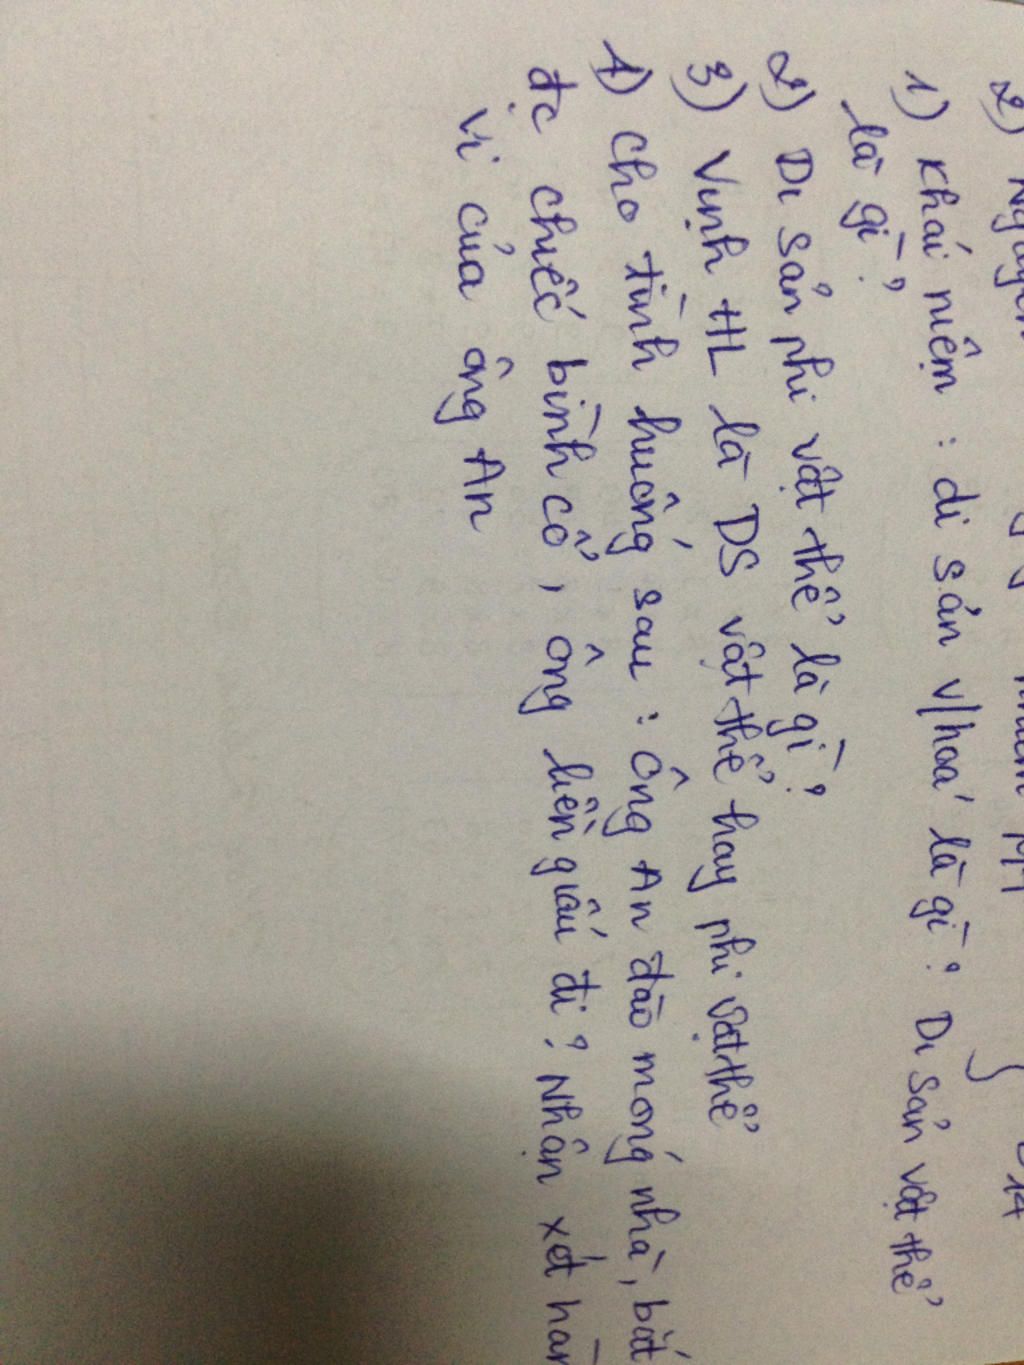 2)
1) Khái niệm : di sản v/hoá là gì? Di sản vật thể
là gì?
2) Di sản phi vật thể là gì?
3) Vịnh HL là DS vật thể hay phi vật thể
1) Cho tình huống sau : Ông An đào móng nhà, bắt
đc chiếc bình cổ, ông liền giấu đi? Nhận xét hàn
vi của ông An